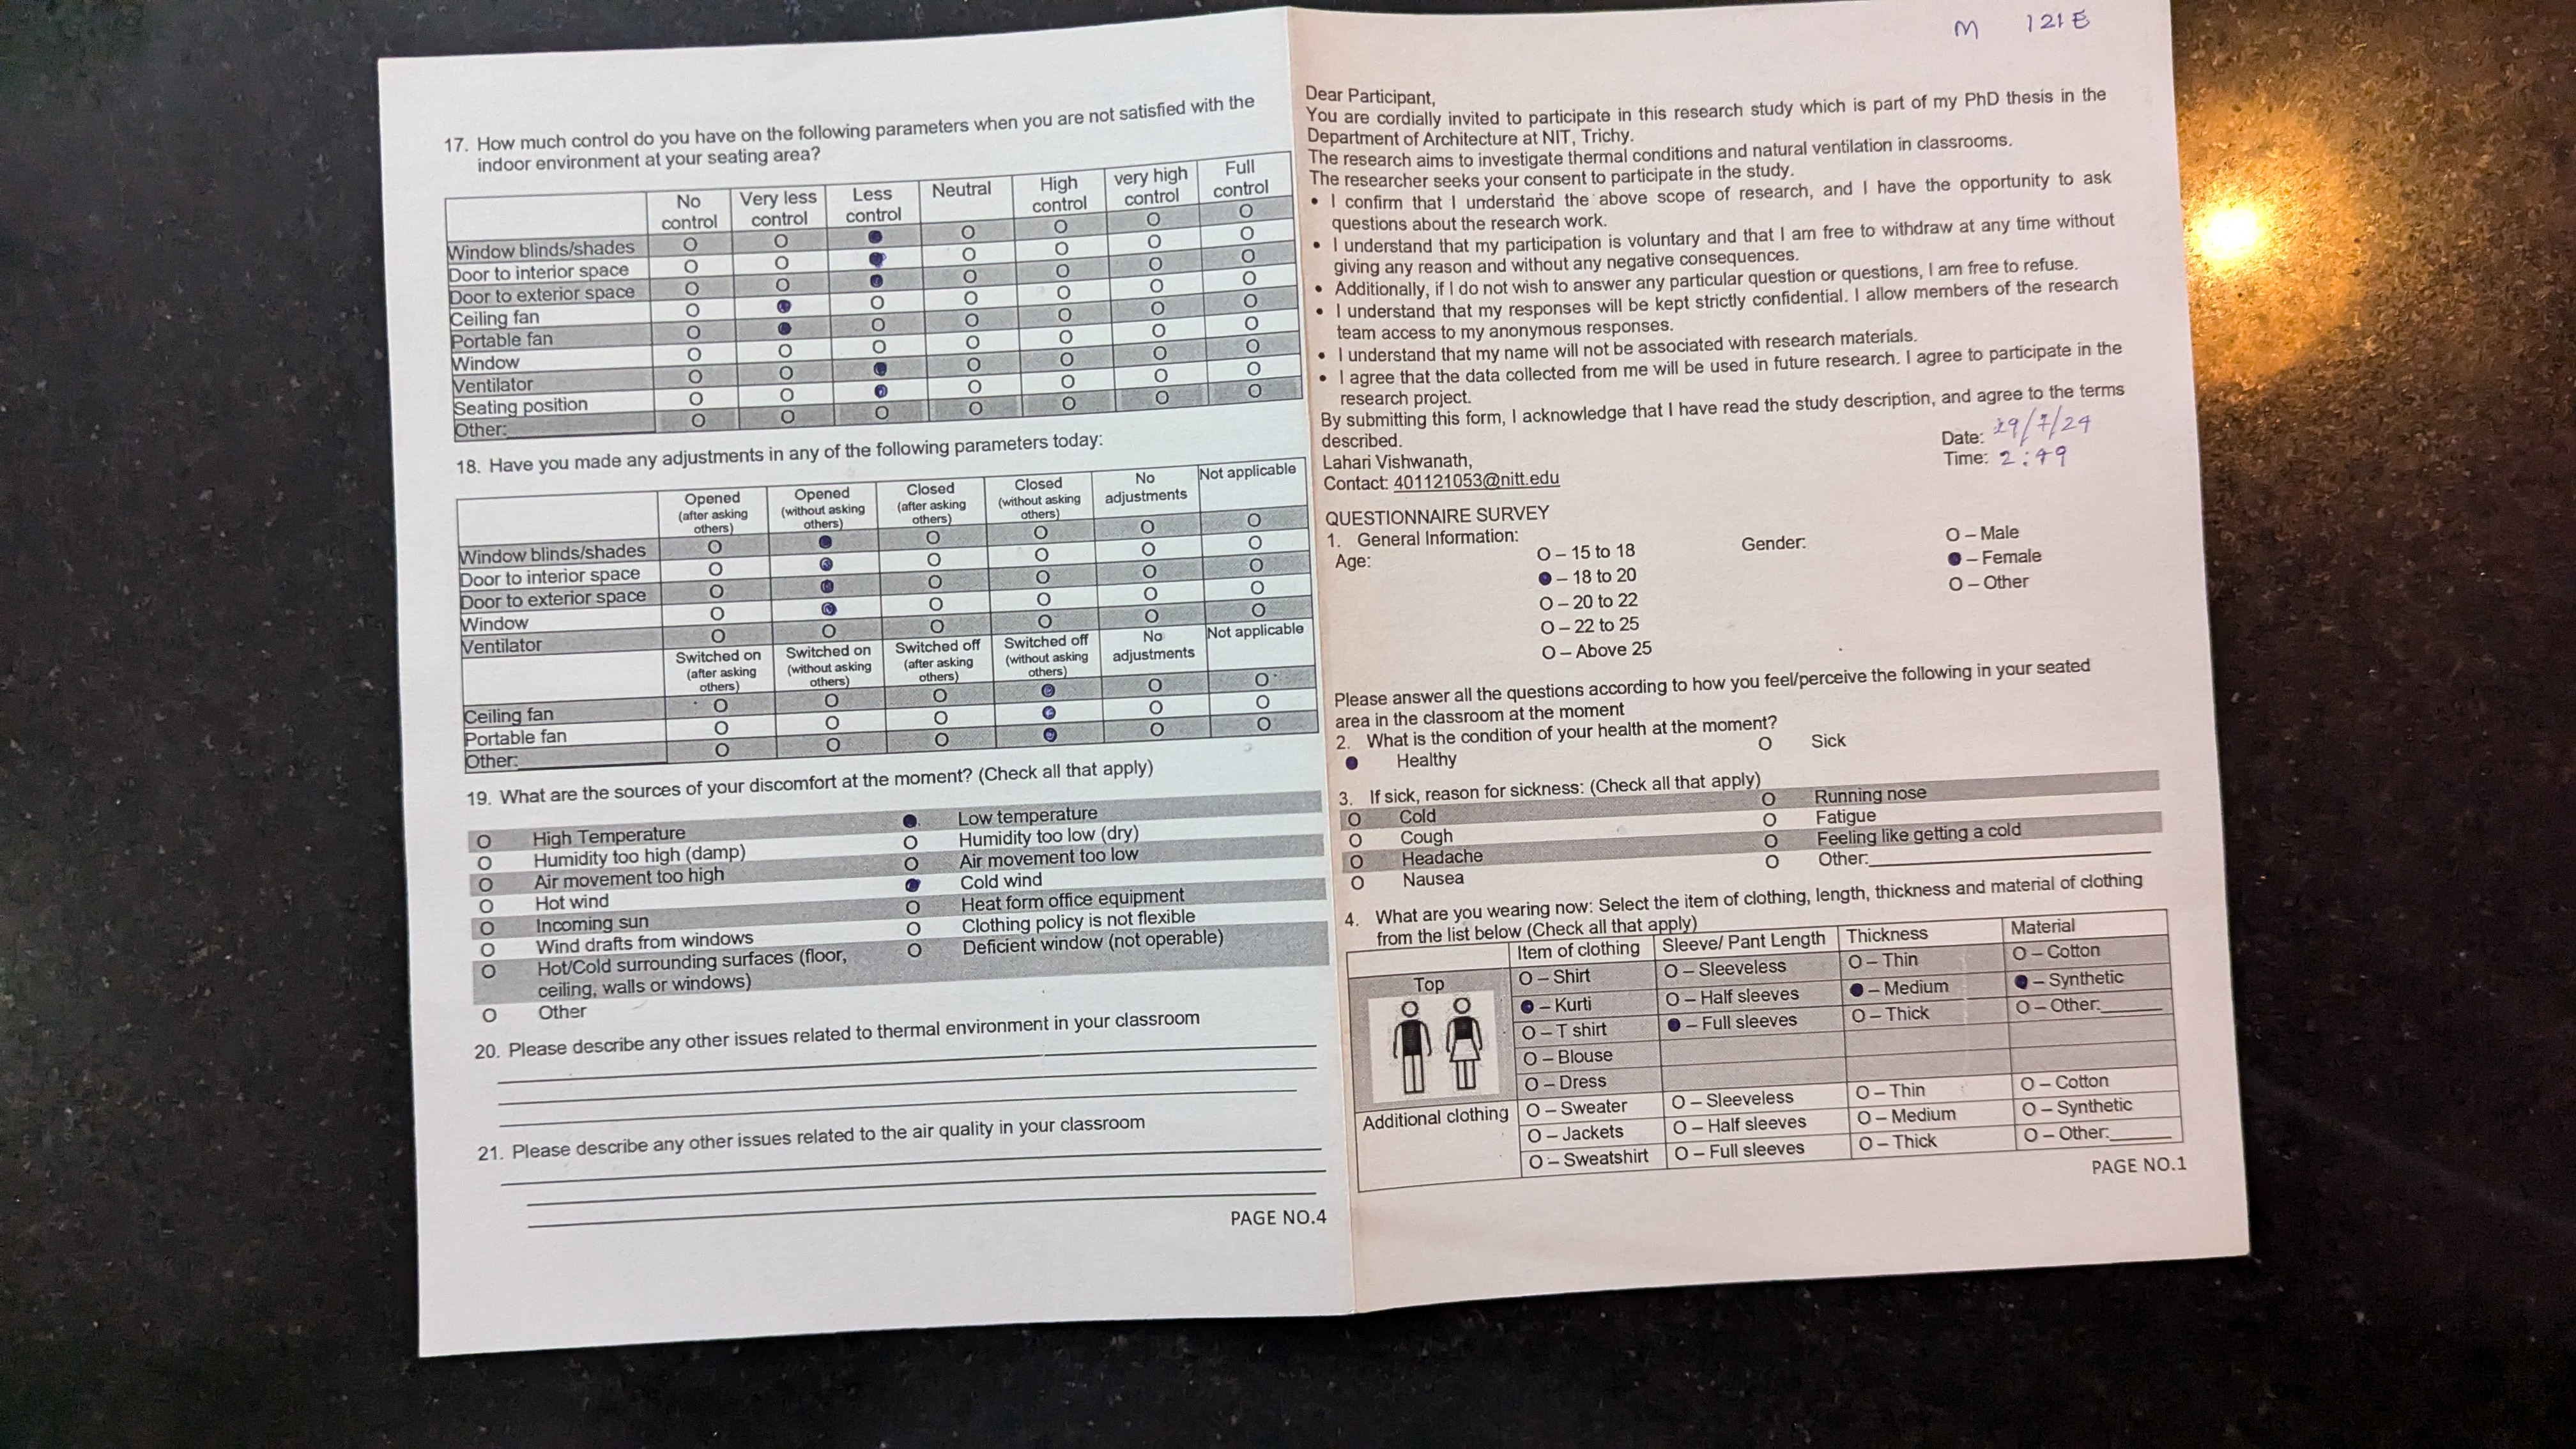 17. How much control do you have on the following parameters when you are not satisfied with the
indoor environment at your seating area?
No control Very less control Less control Neutral High control very high control Full control
Window blinds/shades O O ● O O O O
Door to interior space O O ● O O O O
Door to exterior space O O ● O O O O
Ceiling fan O ● O O O O O
Portable fan O ● O O O O O
Window O O O O O O O
Ventilator O O ● O O O O
Seating position O O ● O O O O
Other: O O O O O O O
18. Have you made any adjustments in any of the following parameters today:
Opened (after asking others) Opened (without asking others) Closed (after asking others) Closed (without asking others) No adjustments Not applicable
Window blinds/shades O ● O O O O
Door to interior space O ● O O O O
Door to exterior space O ● O O O O
Window O ● O O O O
Ventilator O O O O O O
Switched on (after asking others) Switched on (without asking others) Switched off (after asking others) Switched off (without asking others) No adjustments Not applicable
Ceiling fan O O O ● O O
Portable fan O O O ● O O
Other: O O O ● O O
19. What are the sources of your discomfort at the moment? (Check all that apply)
O High Temperature ● Low temperature
O Humidity too high (damp) O Humidity too low (dry)
O Air movement too high O Air movement too low
O Hot wind ● Cold wind
O Incoming sun O Heat form office equipment
O Wind drafts from windows O Clothing policy is not flexible
O Hot/Cold surrounding surfaces (floor, O Deficient window (not operable)
ceiling, walls or windows)
O Other
20. Please describe any other issues related to thermal environment in your classroom
21. Please describe any other issues related to the air quality in your classroom
PAGE NO.4
M 121E
Dear Participant,
You are cordially invited to participate in this research study which is part of my PhD thesis in the
Department of Architecture at NIT, Trichy.
The research aims to investigate thermal conditions and natural ventilation in classrooms.
The researcher seeks your consent to participate in the study.
• I confirm that I understand the above scope of research, and I have the opportunity to ask
questions about the research work.
• I understand that my participation is voluntary and that I am free to withdraw at any time without
giving any reason and without any negative consequences.
• Additionally, if I do not wish to answer any particular question or questions, I am free to refuse.
• I understand that my responses will be kept strictly confidential. I allow members of the research
team access to my anonymous responses.
• I understand that my name will not be associated with research materials.
• I agree that the data collected from me will be used in future research. I agree to participate in the
research project.
By submitting this form, I acknowledge that I have read the study description, and agree to the terms
described.
Date: 29/7/24
Lahari Vishwanath,
Time: 2:49
Contact: 401121053@nitt.edu
QUESTIONNAIRE SURVEY
1. General Information:
Age: O – 15 to 18 Gender: O – Male
● – 18 to 20 ● – Female
O – 20 to 22 O – Other
O – 22 to 25
O – Above 25
Please answer all the questions according to how you feel/perceive the following in your seated
area in the classroom at the moment
2. What is the condition of your health at the moment?
● Healthy O Sick
3. If sick, reason for sickness: (Check all that apply)
O Cold O Running nose
O Cough O Fatigue
O Headache O Feeling like getting a cold
O Nausea O Other:
4. What are you wearing now: Select the item of clothing, length, thickness and material of clothing
from the list below (Check all that apply)
Item of clothing Sleeve/ Pant Length Thickness Material
Top O – Shirt O – Sleeveless O – Thin O – Cotton
● – Kurti O – Half sleeves ● – Medium ● – Synthetic
O – T shirt ● – Full sleeves O – Thick O – Other:
O – Blouse
O – Dress
Additional clothing O – Sweater O – Sleeveless O – Thin O – Cotton
O – Jackets O – Half sleeves O – Medium O – Synthetic
O – Sweatshirt O – Full sleeves O – Thick O – Other:
PAGE NO.1